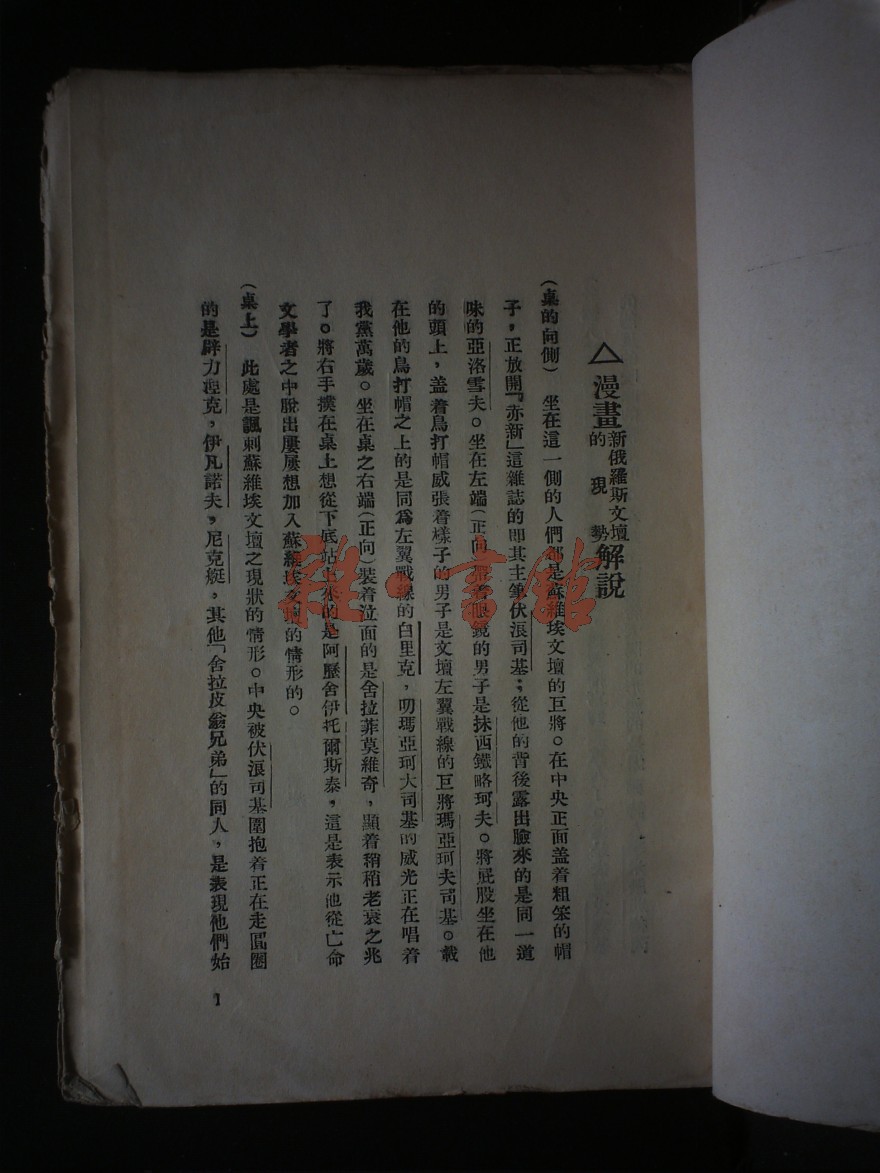 △漫畫新俄羅斯文壇的現勢解說
(桌的向側) 坐在這一側的人們都是蘇維埃文壇的巨將。在中央正面盖着粗笨的帽
子，正放開『赤新』這雜誌的即其主筆伏浪司基；從他的背後露出臉來的是同一道
味的亞洛雪夫。坐在左端(正向)帶着眼鏡的男子是抹西鐵略珂夫。將屁股坐在他
的頭上，盖着鳥打帽威張着樣子的男子是文壇左翼戰線的巨將瑪亞珂夫司基。載
在他的鳥打帽之上的是同爲左翼戰線的白里克，叨瑪亞珂大司基的威光正在唱着
我黨萬歲。坐在桌之右端(正向)裝着泣面的是舍拉菲莫維奇，顯着稍稍老衰之兆
了。將右手撲在桌上想從下底站上來的是阿歷舍伊托爾斯泰，這是表示他從亡命
文學者之中脫出屢屢想加入蘇維埃文壇的情形的。
(桌上) 此處是諷刺蘇維埃文壇之現狀的情形。中央被伏浪司基圍抱着正在走圓圈
的是辟力捏克，伊凡諾夫，尼克挺，其他「舍拉皮翁兄弟」的同人，是表現他們始
1
雜·書館